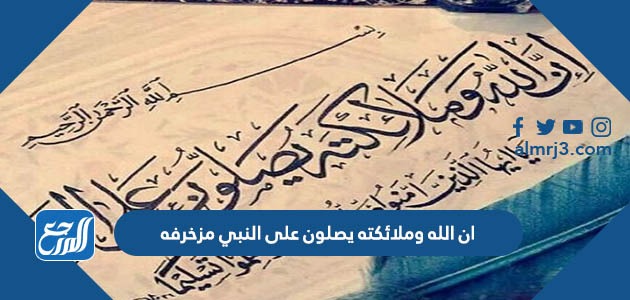 بسم الله الرحمن الرحيم
إن الله وملائكته يصلون على
يا أيها الذين آمنوا
تسليما
almrj3.com
ان الله وملائكته يصلون على النبي مزخرفه
المرجع